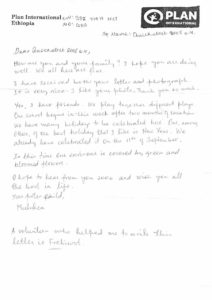 Plan International
Ethiopia
PLAN
INTERNATIONAL
Dear
How are you and your family? I hope you are doing
well. We all here are fine.
I have received both your letter and photograph.
It is very nice. I like your photo. Thank you so much.
Yes, I have friends. We play together different plays.
Our school began in this week after two months of vacation
We have many holidays to be celebrated here. But, among
other, of our best holiday that I like is New Year. We
already have celebrated it on the 11th of September.
In this time our environs is covered by green and
bloomed flowers.
I hope to hear from you soon and wish you all
the best in life.
Your sister child,
A volunteer who helped me to write this
letter is